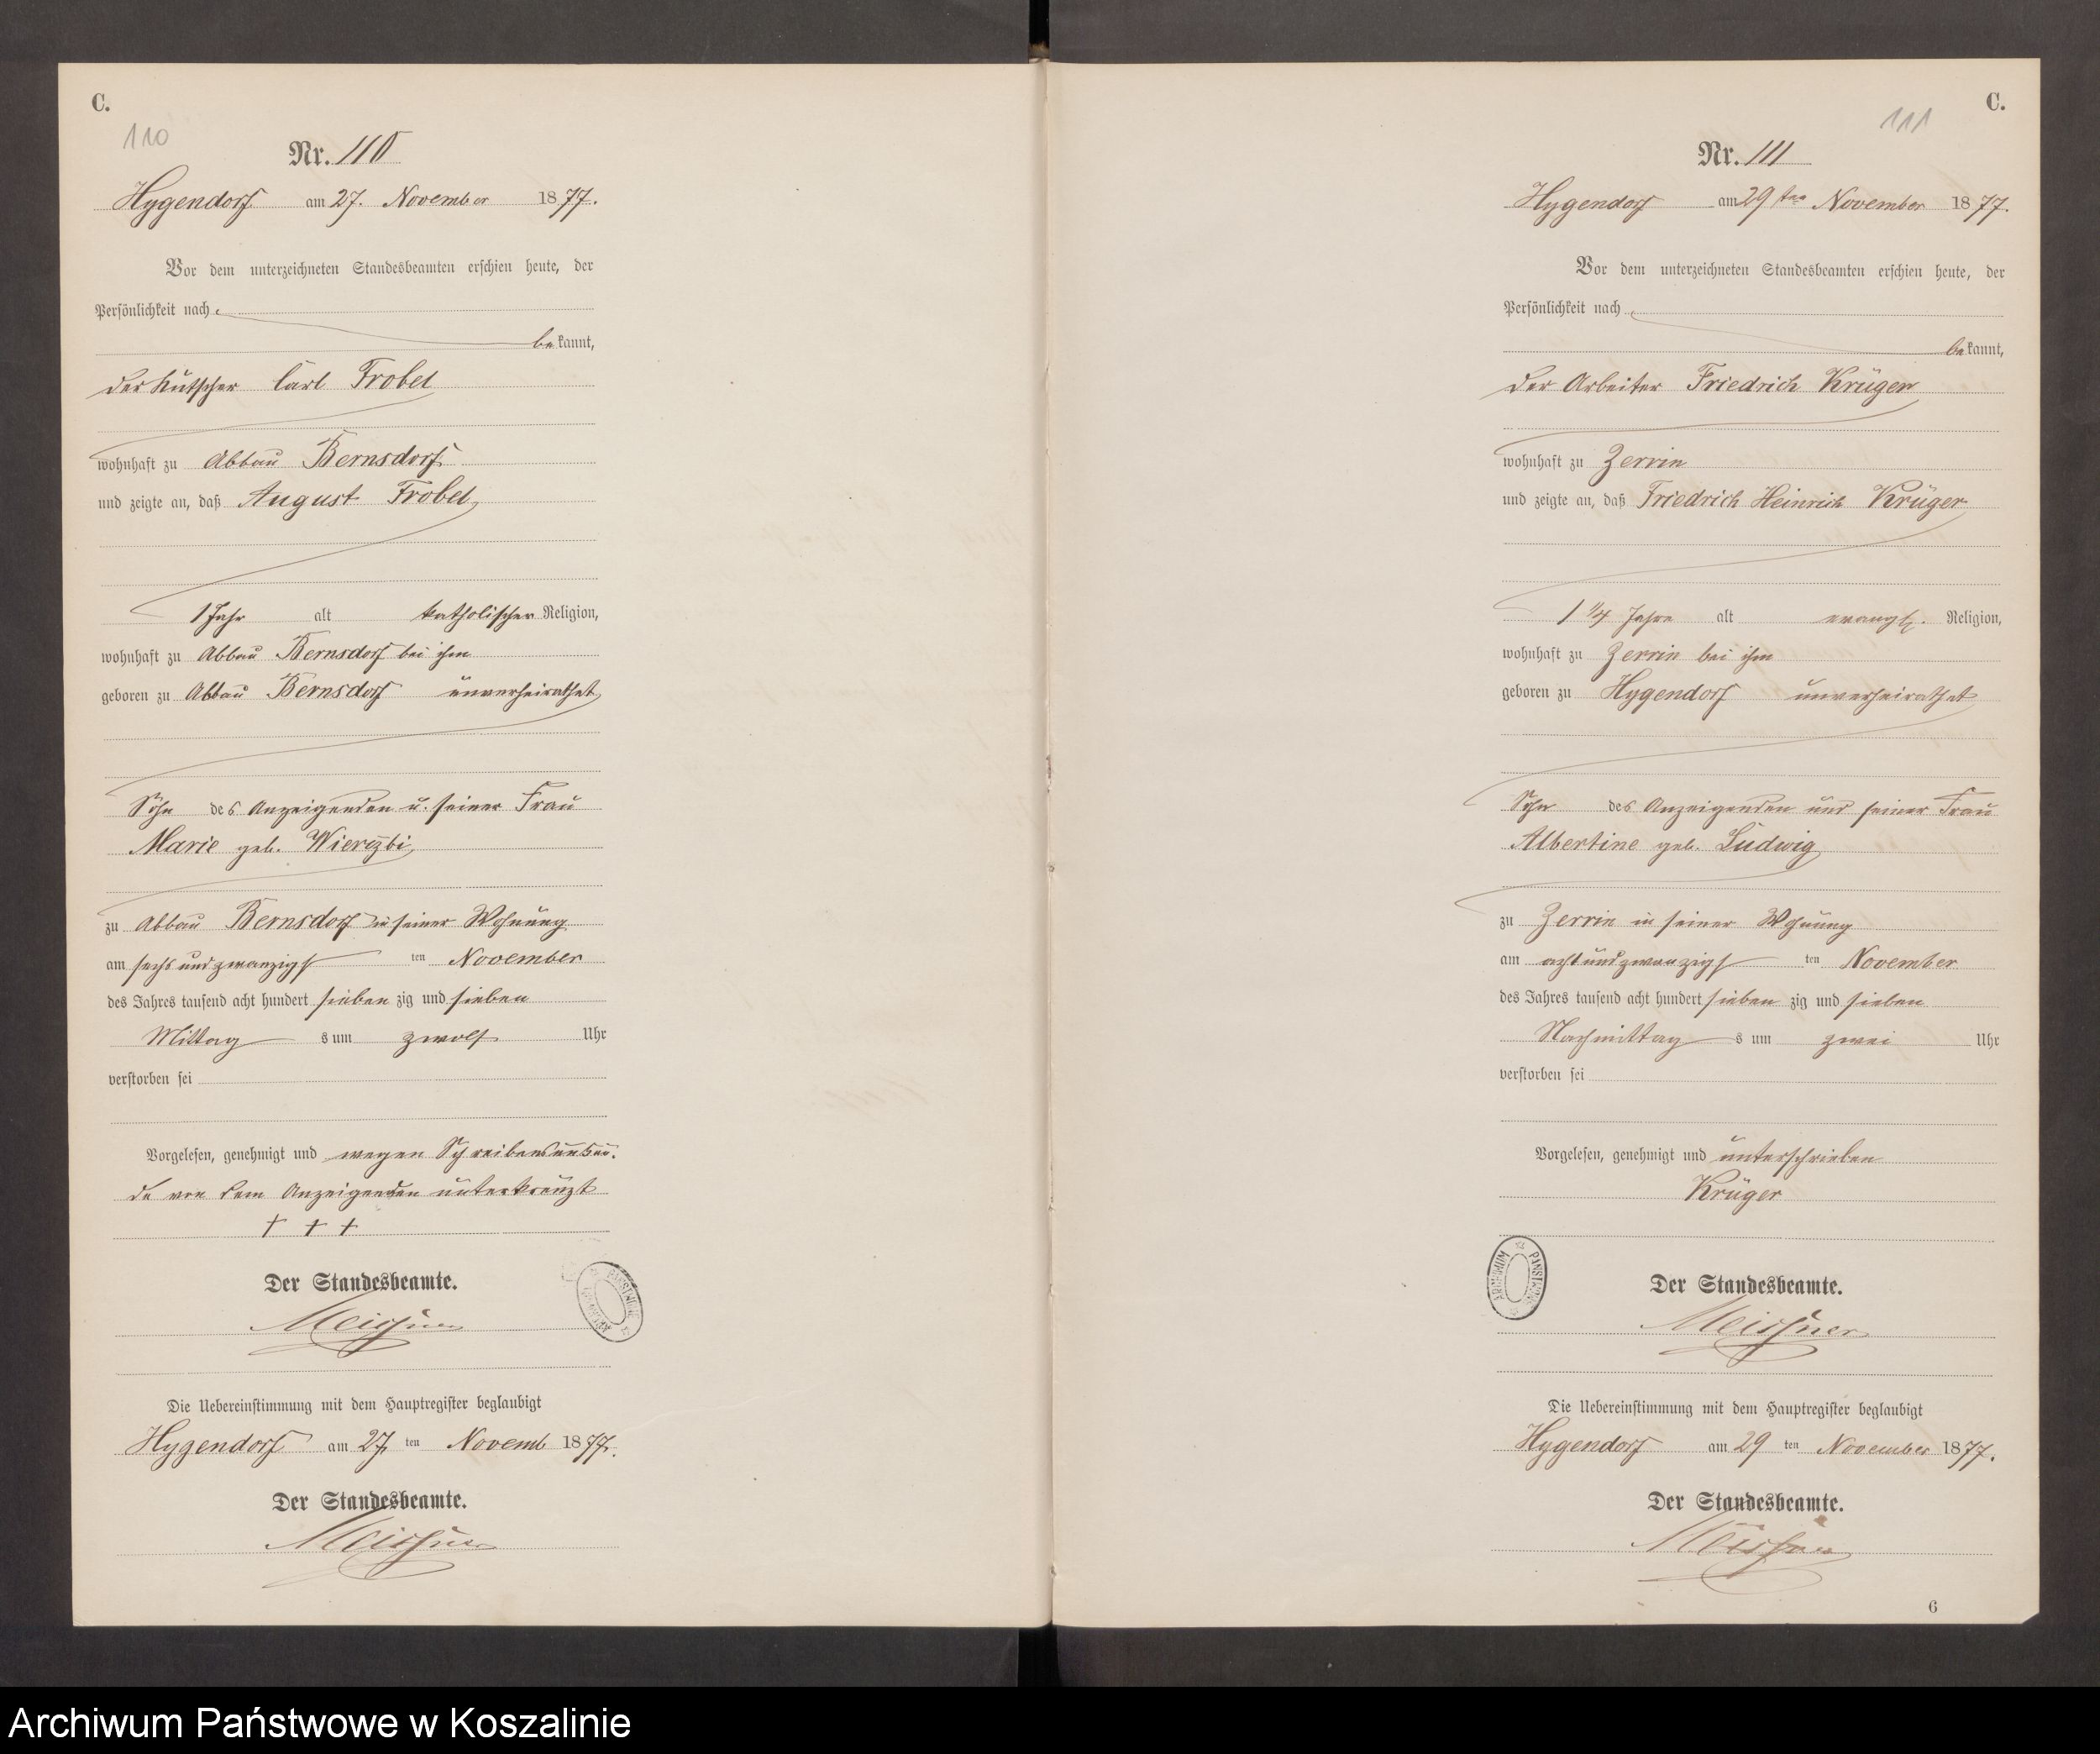 C.
110
Nr. 110
Hygendorf am 27. November 1877.
Vor dem unterzeichneten Standesbeamten erschien heute, der
Persönlichkeit nach
bekannt,
der Kutscher Carl Frobel
wohnhaft zu Abbau Bernsdorf
und zeigte an, daß August Frobel
1 Jahr alt katholischer Religion,
wohnhaft zu Abbau Bernsdorf bei ihm
geboren zu Abbau Bernsdorf unverheirathet
Sohn des Anzeigenden u. seiner Frau
Marie geb. Wierzbi
zu Abbau Bernsdorf in seiner Wohnung
am sechs und zwanzigsten November
des Jahres tausend acht hundert siebenzig und sieben
Mittags um zwolf Uhr
verstorben sei
Vorgelesen, genehmigt und wegen Schreibensunkun-
de von dem Anzeigenden unterkreuzt
† † †
Der Standesbeamte.
Meissner
Die Uebereinstimmung mit dem Hauptregister beglaubigt
Hygendorf am 27 ten Novemb 1877.
Der Standesbeamte.
Meissner
C.
111
Nr. 111
Hygendorf am 29ten November 1877.
Vor dem unterzeichneten Standesbeamten erschien heute, der
Persönlichkeit nach
bekannt,
der Arbeiter Friedrich Krüger
wohnhaft zu Zerrin
und zeigte an, daß Friedrich Heinrich Krüger
1 1/4 Jahre alt evangl. Religion,
wohnhaft zu Zerrin bei ihm
geboren zu Hygendorf unverheirathet
Sohn des Anzeigenden und seiner Frau
Albertine geb. Ludwig
zu Zerrin in seiner Wohnung
am acht und zwanzigsten November
des Jahres tausend acht hundert siebenzig und sieben
Nachmittags um zwei Uhr
verstorben sei
Vorgelesen, genehmigt und unterschrieben
Krüger
ARCHIWUM PAŃSTWOWE
Der Standesbeamte.
Meissner
Die Uebereinstimmung mit dem Hauptregister beglaubigt
Hygendorf am 29 ten November 1877.
Der Standesbeamte.
Meissner
6
Archiwum Państwowe w Koszalinie